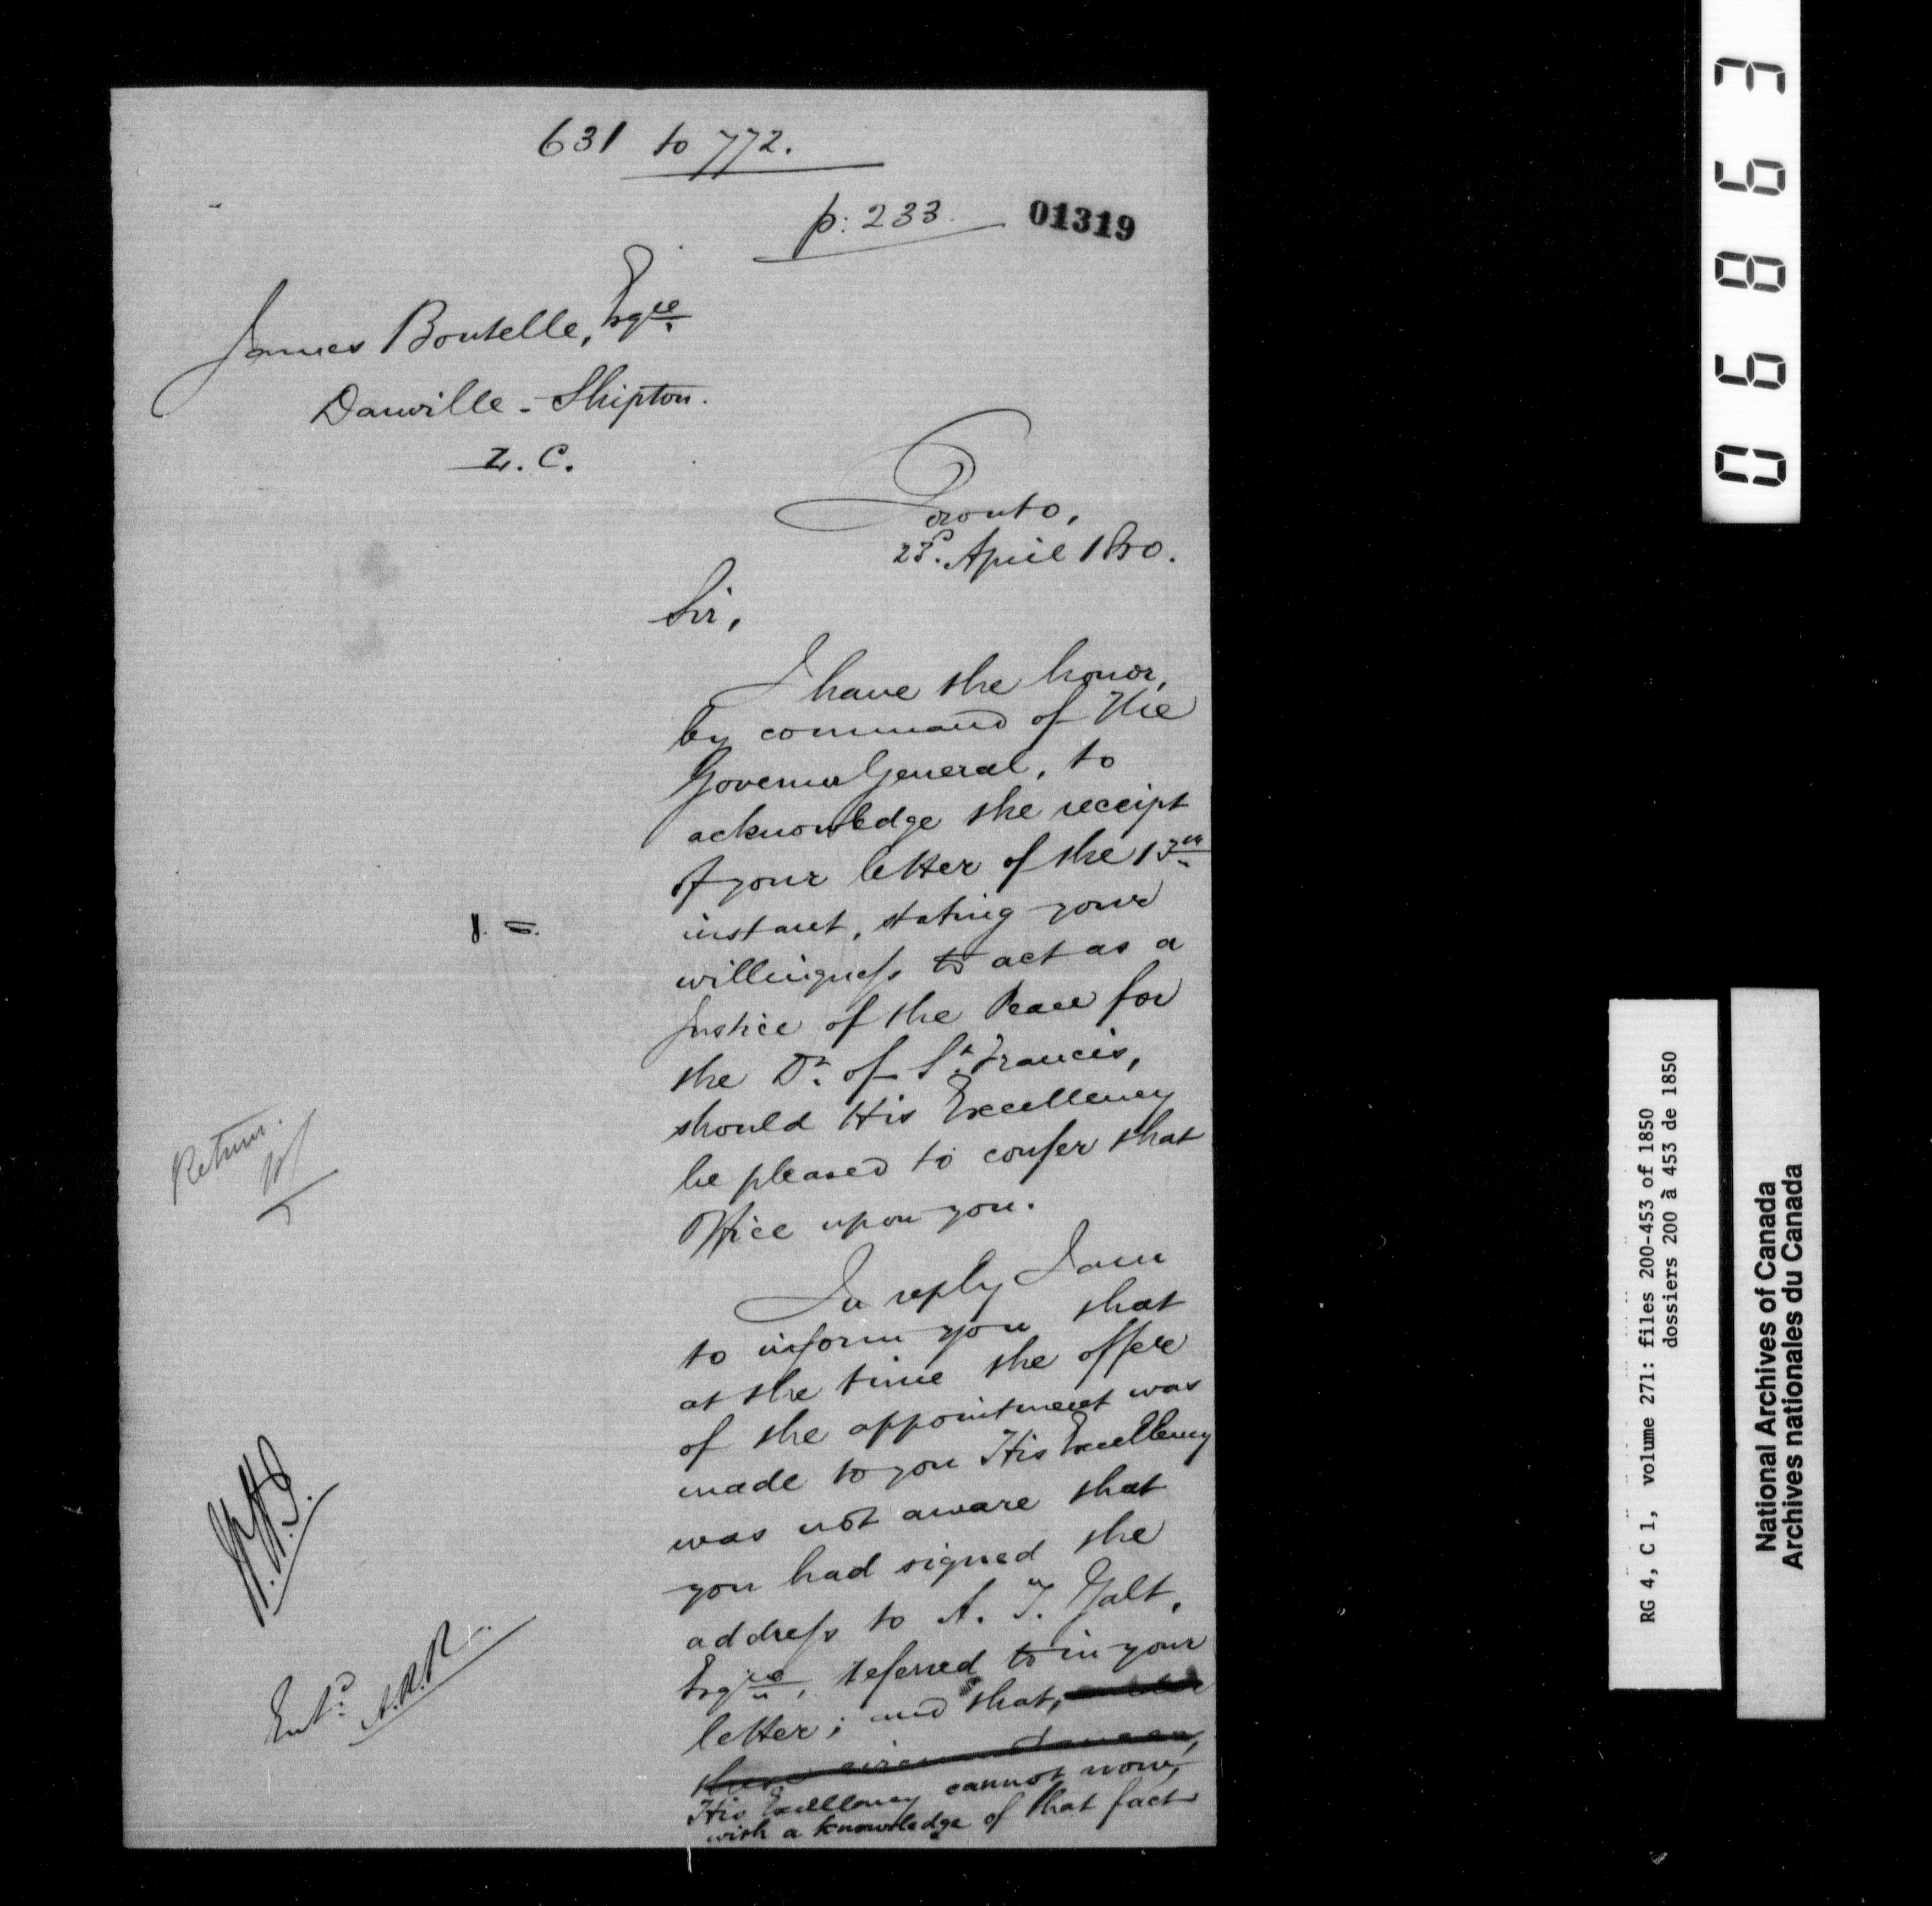 631 to 772.
p: 233.
01319
James Boutelle, Esqre.
Danville - Shipton.
L. C.
Toronto,
23d. April 1850.
Sir,
I have the honor,
by command of The
Governor General, to
acknowledge the receipt
of your letter of the 13th
instant, stating your
willingness to act as a
Justice of the Peace for
the Dt. of St. Francis,
should His Excellency
be pleased to confer that
Office upon you.
In reply I am
to inform you that
at the time the offer
of the appointment was
made to you His Excellency
was not aware that
you had signed the
address to A. T. Galt,
Esqre, referred to in your
letter; and that, under
these circumstances,
His Excellency cannot now,
with a knowledge of that fact
Return.
Entd. A.R.R.
06863
RG 4, C 1, volume 271: files 200-453 of 1850
dossiers 200 à 453 de 1850
National Archives of Canada
Archives nationales du Canada